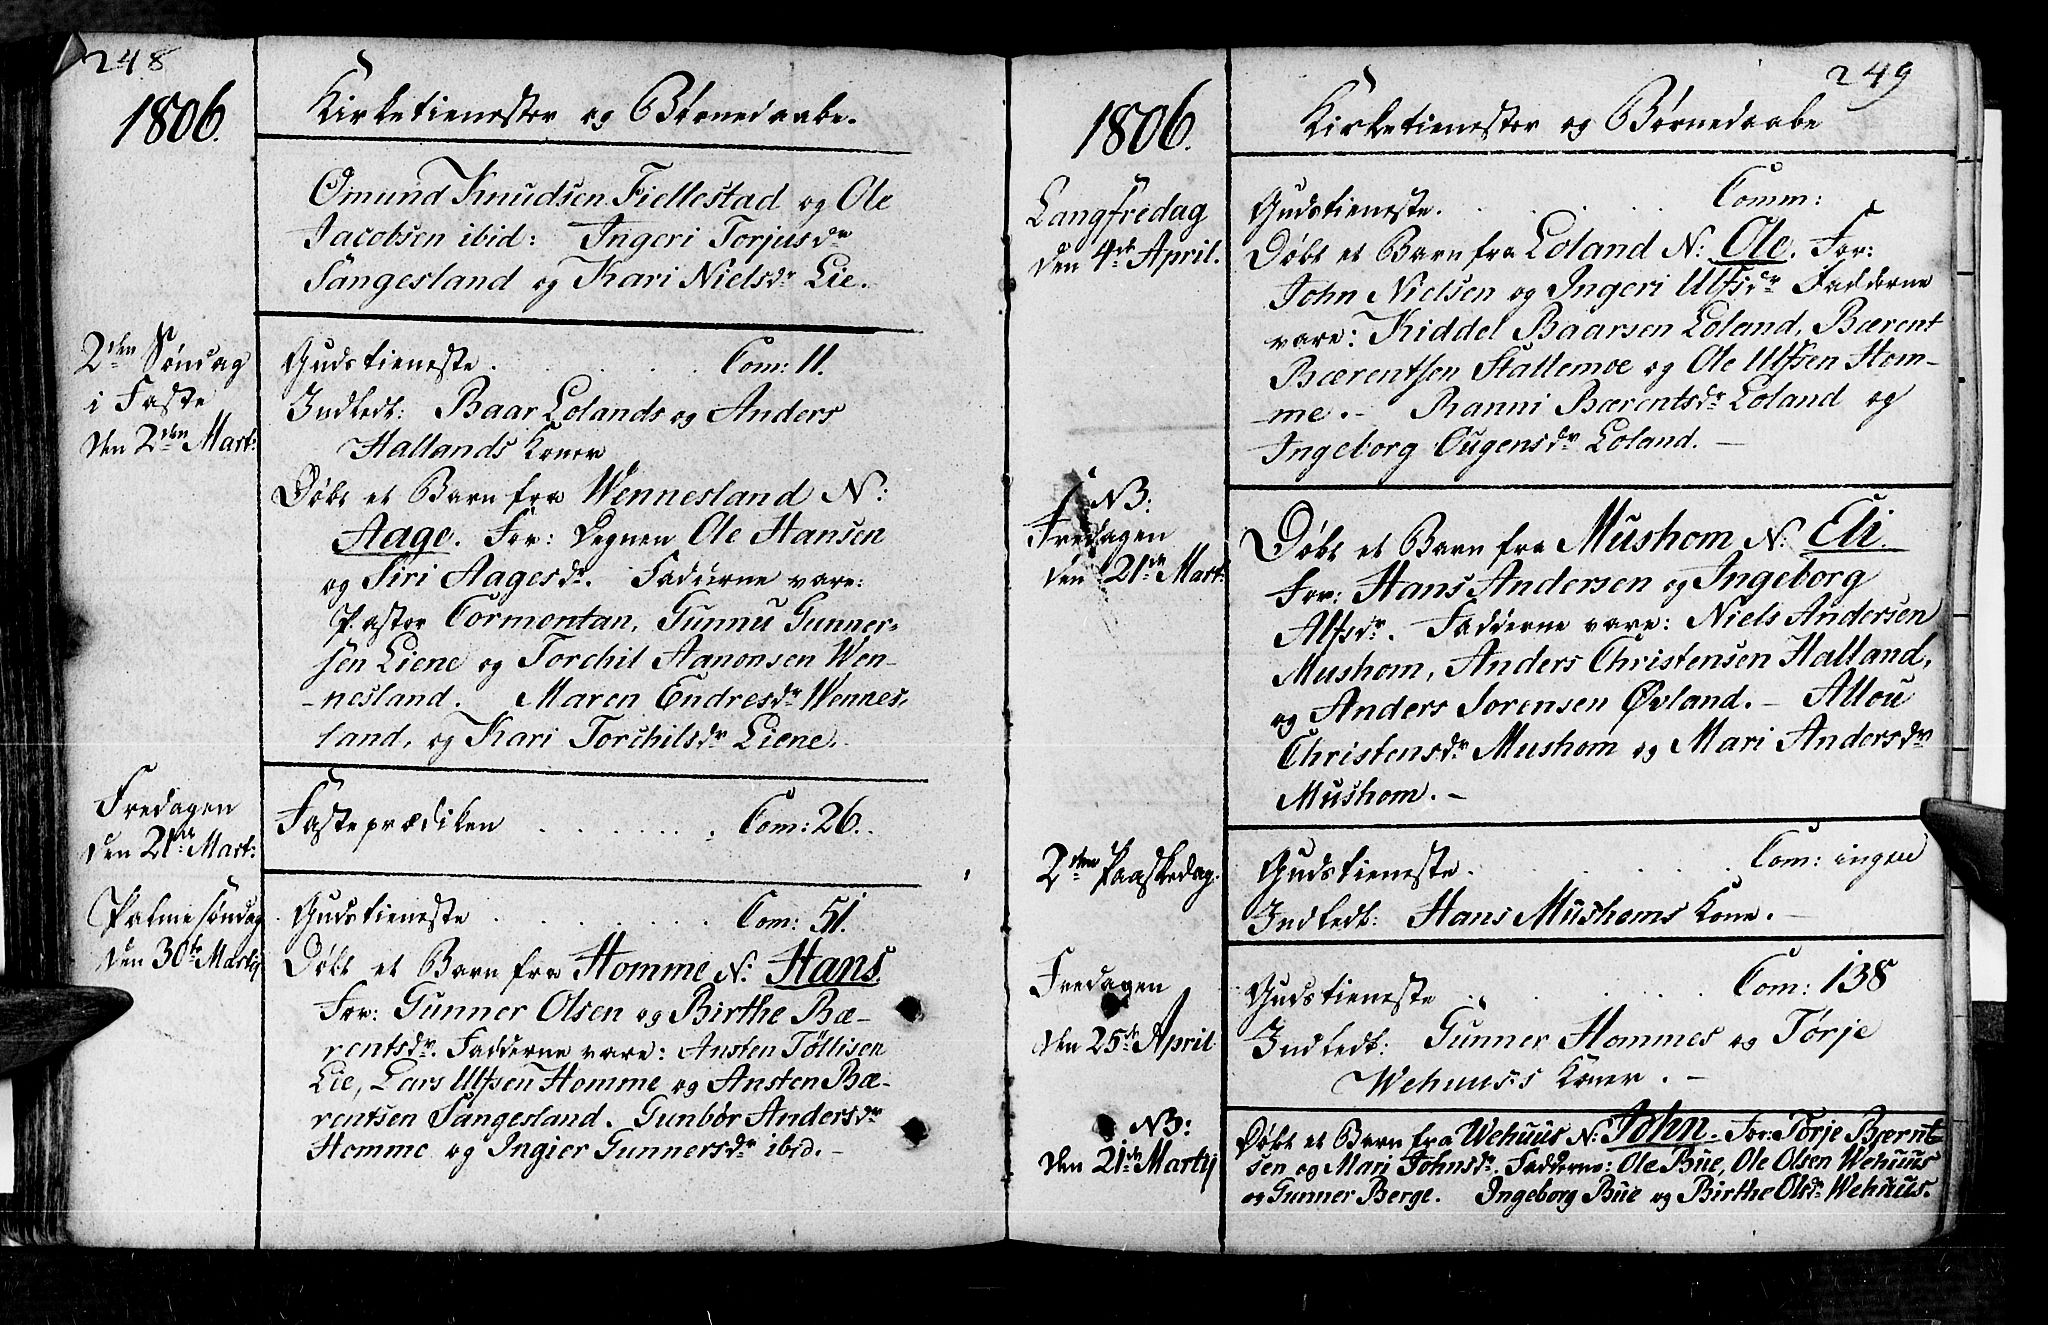 248
1806.
Kirketienester og Børnedaabe.
Omund Knudsen Fiellestad og Ole
Jacobsen ibid: Ingeri Torjusdr
Sangesland og Kari Nielsdr Lie.
2den Søndag
i Faste
den 2den Mart:
Gudstieneste. Com: 11.
Indledt: Baar Lolands og Anders
Hallands Koner
Døbt et Barn fra Wennesland N:
Aage. For: Degnen Ole Hansen
og Siri Aagesdr. Fadderne vare:
Pastor Cormontan, Gunnu Gunner-
sen Liene og Torchil Aanonsen Wen-
-nesland. Maren Endresdr Wennes-
land, og Kari Torchilsdr Liene.
Fredagen
den 21de Mart:
Fasteprædiken Com: 26.
Palmesøndag
den 30te Martij
Gudstieneste Com: 51.
Døbt et Barn fra Homme N: Hans.
For: Gunner Olsen og Birthe Bæ-
rentsdr. Fadderne vare: Ansten Tøllisen
Lie, Lars Ulfsen Homme og Ansten Bæ-
rentsen Sangesland. Gunbør Andersdr
Homme og Ingier Gunnersdr ibid.-
249
1806.
Kirketienester og Børnedaabe
Langfredag
den 4de April.
Gudstieneste. Comm:
Døbt et Barn fra Loland N: Ole. For:
John Nielsen og Ingeri Ulfsdr Fadderne
vare: Kiddel Baarsen Loland, Bærent
Bærentsen Stallemoe og Ole Ulfsen Hom-
-me.- Ranni Bærentsdr Loland og
Ingeborg Ougensdr Loland.-
NB:
Fredagen
den 21de Mart:
Døbt et Barn fra Mushom N: Eli.
For: Hans Andersen og Ingeborg
Alfsdr. Fadderne vare: Niels Andersen
Mushom, Anders Christensen Halland,
og Anders Sorensen Øvland.- Allou
Christensdr Mushom og Mari Andersdr
Mushom.-
2den Paaskedag.
Gudstieneste. Com: ingen
Indledt: Hans Mushoms Kone.-
Fredagen
den 25de April
Gudstieneste Com: 138
Indledt: Gunner Hommes og Tørje
Wehuus:s Koner.-
NB:
den 21de Martij
Døbt et Barn fra Wehuus N: John. For: Tørje Bærnt-
sen og Mari Johnsdr. Fadderne: Ole Bue, Ole Olsen Wehuus
og Gunner Berge. Ingeborg Bue og Birthe Olsdr Wehuus.